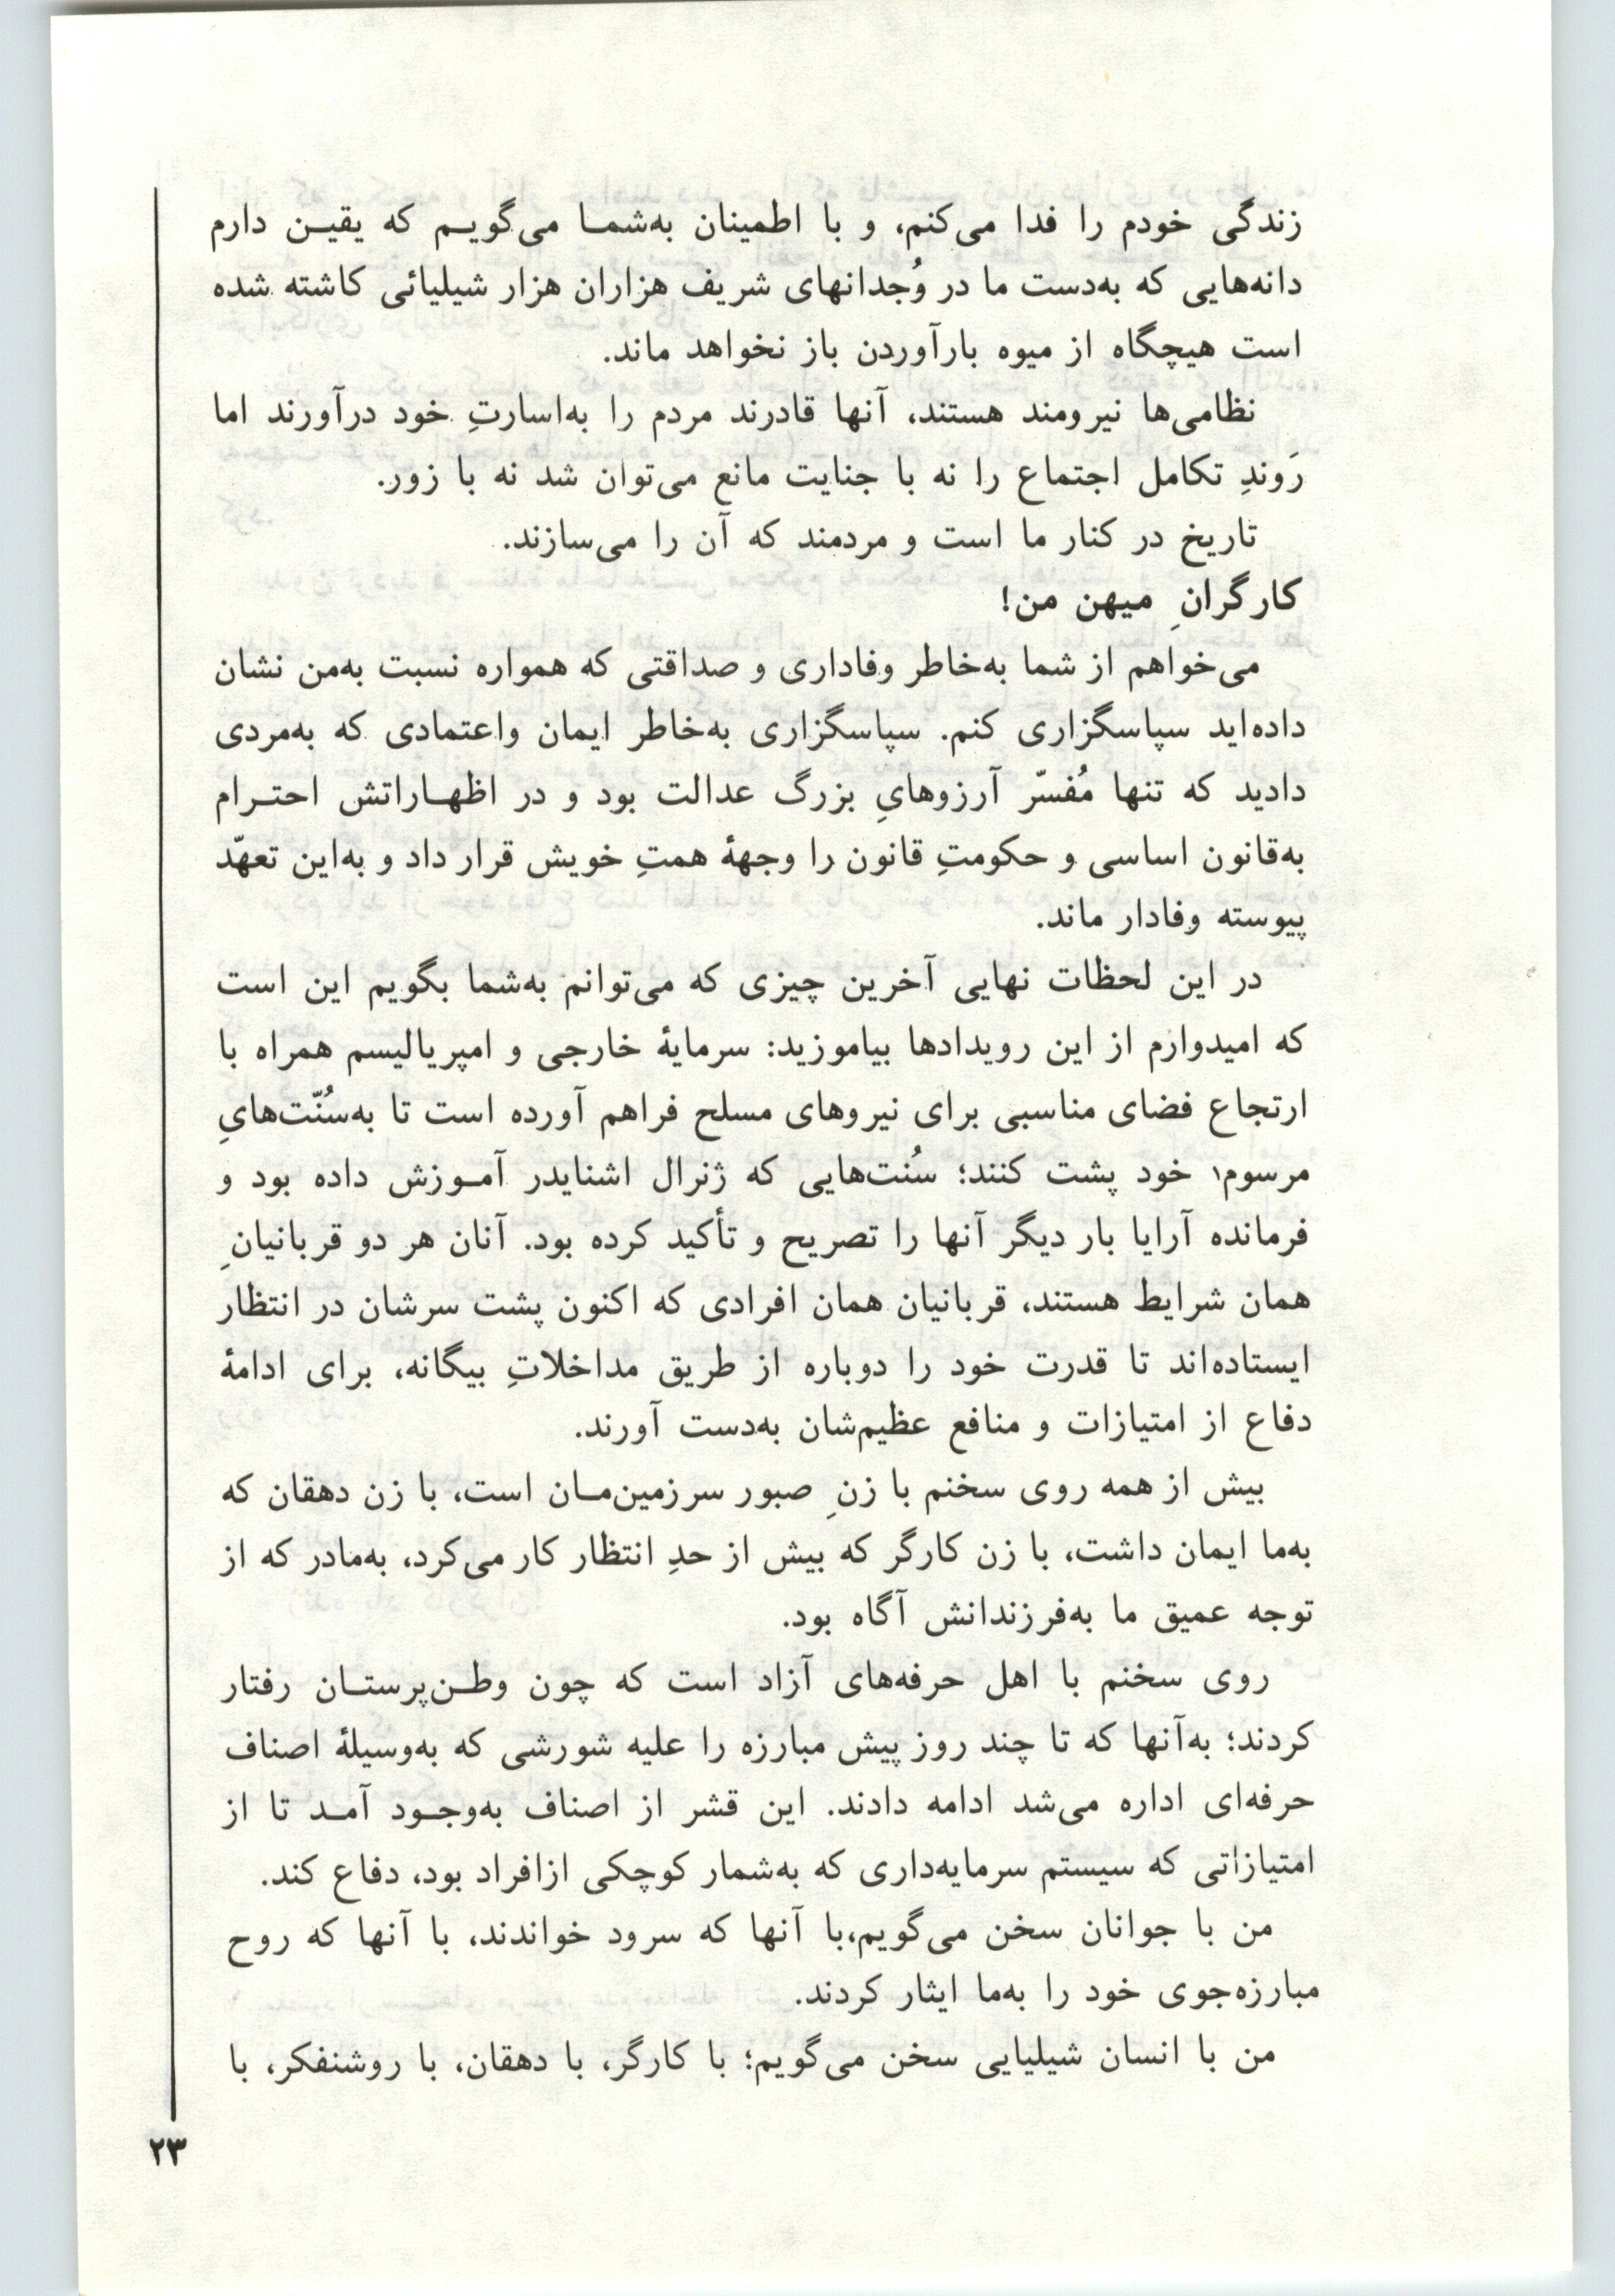 زندگی خودم را فدا می‌کنم، و با اطمینان به‌شما می‌گویم که یقین دارم
دانه‌هایی که به‌دست ما در وُجدانهای شریف هزاران هزار شیلیائی کاشته شده
است هیچگاه از میوه بارآوردن باز نخواهد ماند.
نظامی‌ها نیرومند هستند، آنها قادرند مردم را به‌اسارتِ خود درآورند اما
رَوندِ تکامل اجتماع را نه با جنایت مانع می‌توان شد نه با زور.
تاریخ در کنار ما است و مردمند که آن را می‌سازند.
کارگرانِ میهن من!
می‌خواهم از شما به‌خاطر وفاداری و صداقتی که همواره نسبت به‌من نشان
داده‌اید سپاسگزاری کنم. سپاسگزاری به‌خاطر ایمان واعتمادی که به‌مردی
دادید که تنها مُفسّر آرزوهایِ بزرگ عدالت بود و در اظهاراتش احترام
به‌قانون اساسی و حکومتِ قانون را وجههٔ همتِ خویش قرار داد و به‌این تعهّد
پیوسته وفادار ماند.
در این لحظات نهایی آخرین چیزی که می‌توانم به‌شما بگویم این است
که امیدوارم از این رویدادها بیاموزید: سرمایهٔ خارجی و امپریالیسم همراه با
ارتجاع فضای مناسبی برای نیروهای مسلح فراهم آورده است تا به‌سُنّت‌هایِ
مرسوم۱ خود پشت کنند؛ سُنت‌هایی که ژنرال اشنایدر آموزش داده بود و
فرمانده آرایا بار دیگر آنها را تصریح و تأکید کرده بود. آنان هر دو قربانیانِ
همان شرایط هستند، قربانیان همان افرادی که اکنون پشت سرشان در انتظار
ایستاده‌اند تا قدرت خود را دوباره از طریق مداخلاتِ بیگانه، برای ادامهٔ
دفاع از امتیازات و منافع عظیم‌شان به‌دست آورند.
بیش از همه روی سخنم با زنِ صبور سرزمین‌مان است، با زن دهقان که
به‌ما ایمان داشت، با زن کارگر که بیش از حدِ انتظار کار می‌کرد، به‌مادر که از
توجه عمیق ما به‌فرزندانش آگاه بود.
روی سخنم با اهل حرفه‌های آزاد است که چون وطن‌پرستان رفتار
کردند؛ به‌آنها که تا چند روز پیش مبارزه را علیه شورشی که به‌وسیلهٔ اصناف
حرفه‌ای اداره می‌شد ادامه دادند. این قشر از اصناف به‌وجود آمد تا از
امتیازاتی که سیستم سرمایه‌داری که به‌شمار کوچکی ازافراد بود، دفاع کند.
من با جوانان سخن می‌گویم،با آنها که سرود خواندند، با آنها که روح
مبارزه‌جوی خود را به‌ما ایثار کردند.
من با انسان شیلیایی سخن می‌گویم؛ با کارگر، با دهقان، با روشنفکر، با
۲۳